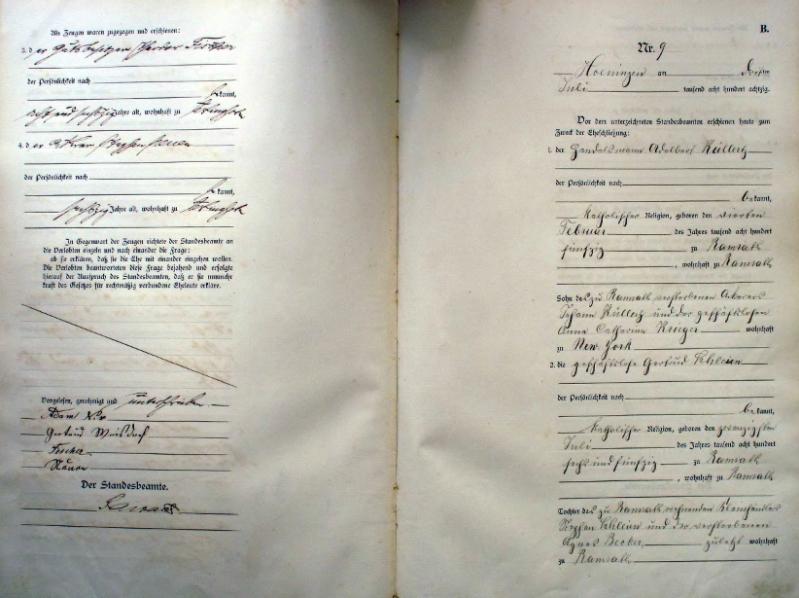 Als Zeugen waren zugezogen und erschienen:
3. d er Gutsbesitzer
der Persönlichkeit nach
kannt,
acht und sechzig Jahre alt, wohnhaft zu
4. d er
der Persönlichkeit nach
kannt,
sechzig Jahre alt, wohnhaft zu
In Gegenwart der Zeugen richtete der Standesbeamte an
die Verlobten einzeln und nach einander die Frage:
ob sie erklären, daß sie die Ehe mit einander eingehen wollen.
Die Verlobten beantworteten diese Frage bejahend und erfolgte
hierauf der Ausspruch des Standesbeamten, daß er sie nunmehr
kraft des Gesetzes für rechtmäßig verbundene Eheleute erkläre.
Vorgelesen, genehmigt und unterschrieben
Adam
Gertrud Weisdorf
Der Standesbeamte.
B.
Nr. 9
Hoeningen am
Juli tausend acht hundert achtzig.
Vor dem unterzeichneten Standesbeamten erschienen heute zum
Zweck der Eheschließung:
1. der Handelsmann Adelbert Küllertz
der Persönlichkeit nach
bekannt,
katholischer Religion, geboren den vierten
Februar des Jahres tausend acht hundert
fünfzig zu Ramrath
, wohnhaft zu Ramrath
Sohn des zu Ramrath verstorbenen Ackerers
Johann Küllertz und der geschäftslosen
Anna Catharina Krüger wohnhaft
zu New York
2. die geschäftslose Gertrud Schleien
der Persönlichkeit nach
bekannt,
katholischer Religion, geboren den zwanzigsten
Juli des Jahres tausend acht hundert
sechs und fünfzig zu Ramrath
, wohnhaft zu Ramrath
Tochter des zu Ramrath wohnenden Kleinhändlers
Stephan Schleien und der verstorbenen
Agnes Becker, zuletzt wohnhaft
zu Ramrath